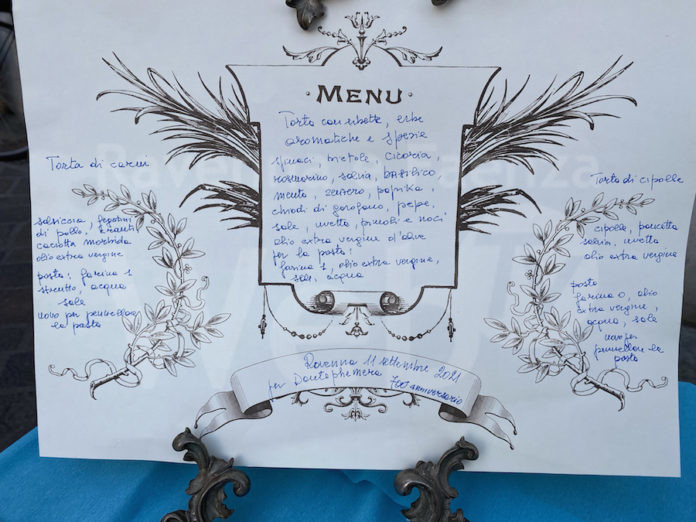 MENU
Torta con erbette, erbe
aromatiche e spezie
spinaci, bietole, cicoria,
rosmarino, salvia, BASILICO,
menta, zenzero, paprika,
chiodi di garofano, pepe,
sale, uvetta, pinoli e noci
olio extra vergine d'olive
per la pasta:
farina 1, olio extra vergine,
sale, acqua
Torta di carne
salsiccia, fegatini
di pollo,
caciotta morbida
olio extra vergine
pasta, farina 1
strutto, acqua
sale
uovo per pennellare
la pasta
Torta di cipolle
cipolle, pancetta
salvia, uvetta
olio extra vergine
pasta
farina 0, olio
extra vergine,
acqua, sale
uovo per
pennellare la
pasta
Ravenna 11 settembre 2021
per Dantephemera 700 anniversario